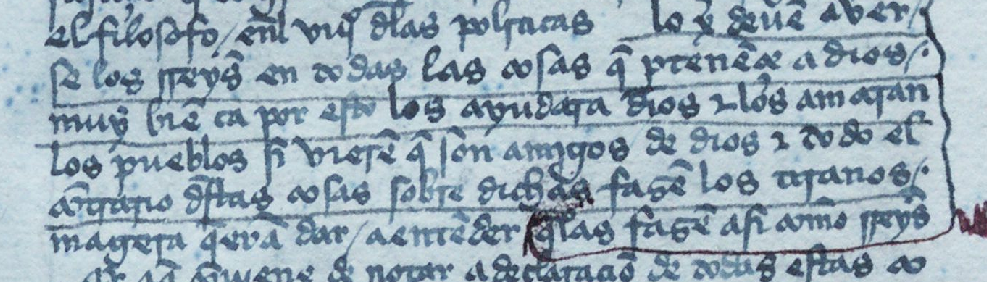 el filosofo / enl vṗ dlas politicas lo .x. deuē aver /
se los rreyes en todas las cosas q̄ ptenēçē a dios /.
muy biē ca por esto los ayudara dios ⁊ los amaran
los pueblos si vierē q̄ son amigos de dios ⁊ todo el
cōtrario dstas cosas sobre dichas fazē los tiranos /.
magera q̄erā dar / a entēder q̄ las fazē asi commo rreyes
aq̄ cōuiene de notar a declaraciō de todas estas co